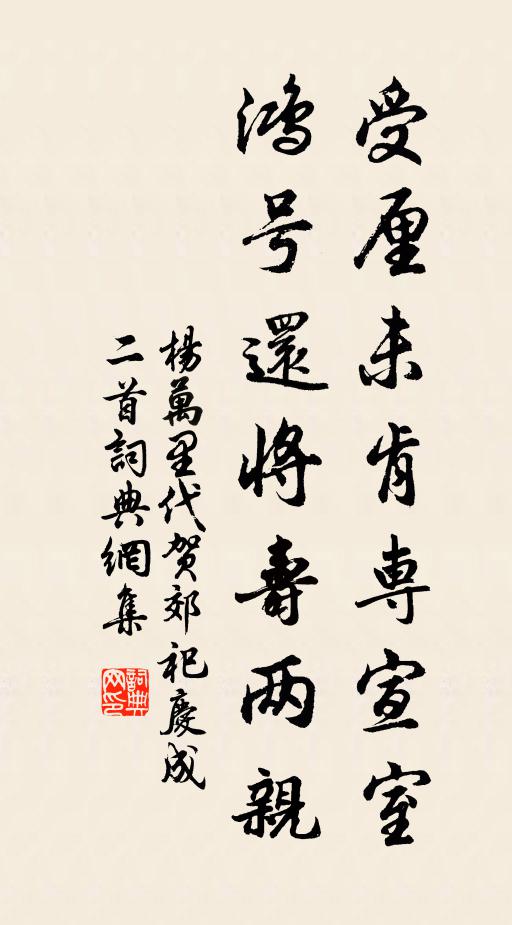 受厘未肯専宣室
鸿号還將壽两親
楊萬里代贺郊祀慶成
二首詞典網集
詞典网印